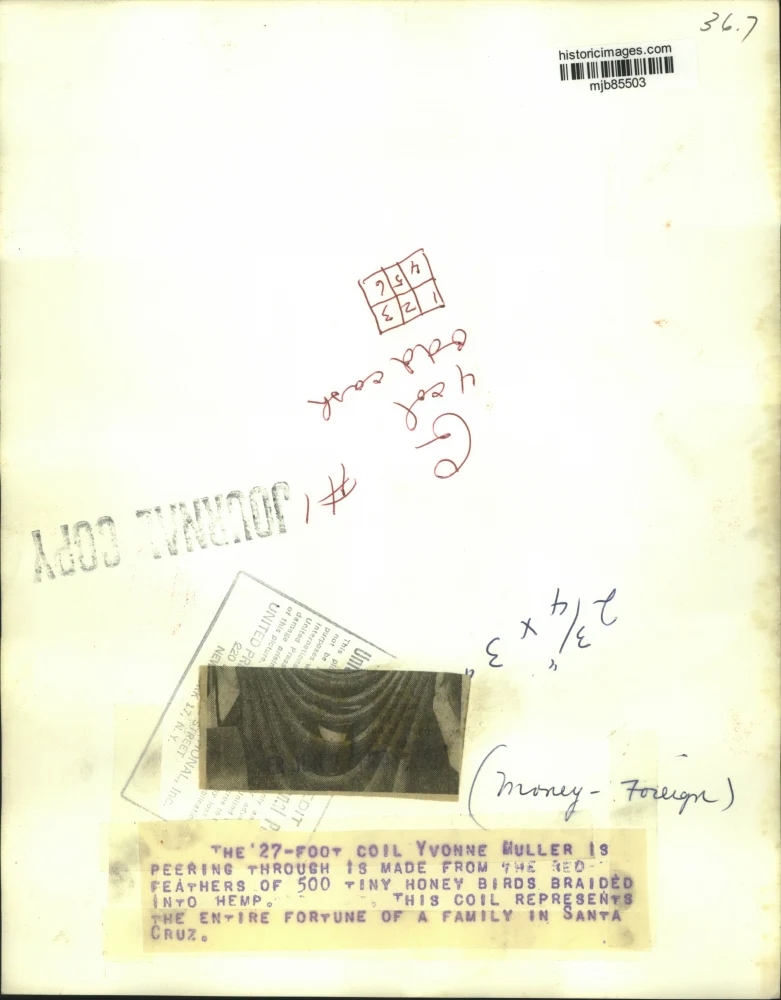 36.7
historicimages.com
mjb85503
4 5 6
1 2 3
odd cash
4 col
G
#1
JOURNAL COPY
2 3/4" x 3"
UNITED PR
220
NEW
17, N.Y.
STREET
IONAL, Inc.
(Money - Foreign)
THE 27-FOOT COIL YVONNE MULLER IS
PEERING THROUGH IS MADE FROM THE RED
FEATHERS OF 500 TINY HONEY BIRDS BRAIDED
INTO HEMP. THIS COIL REPRESENTS
THE ENTIRE FORTUNE OF A FAMILY IN SANTA
CRUZ.